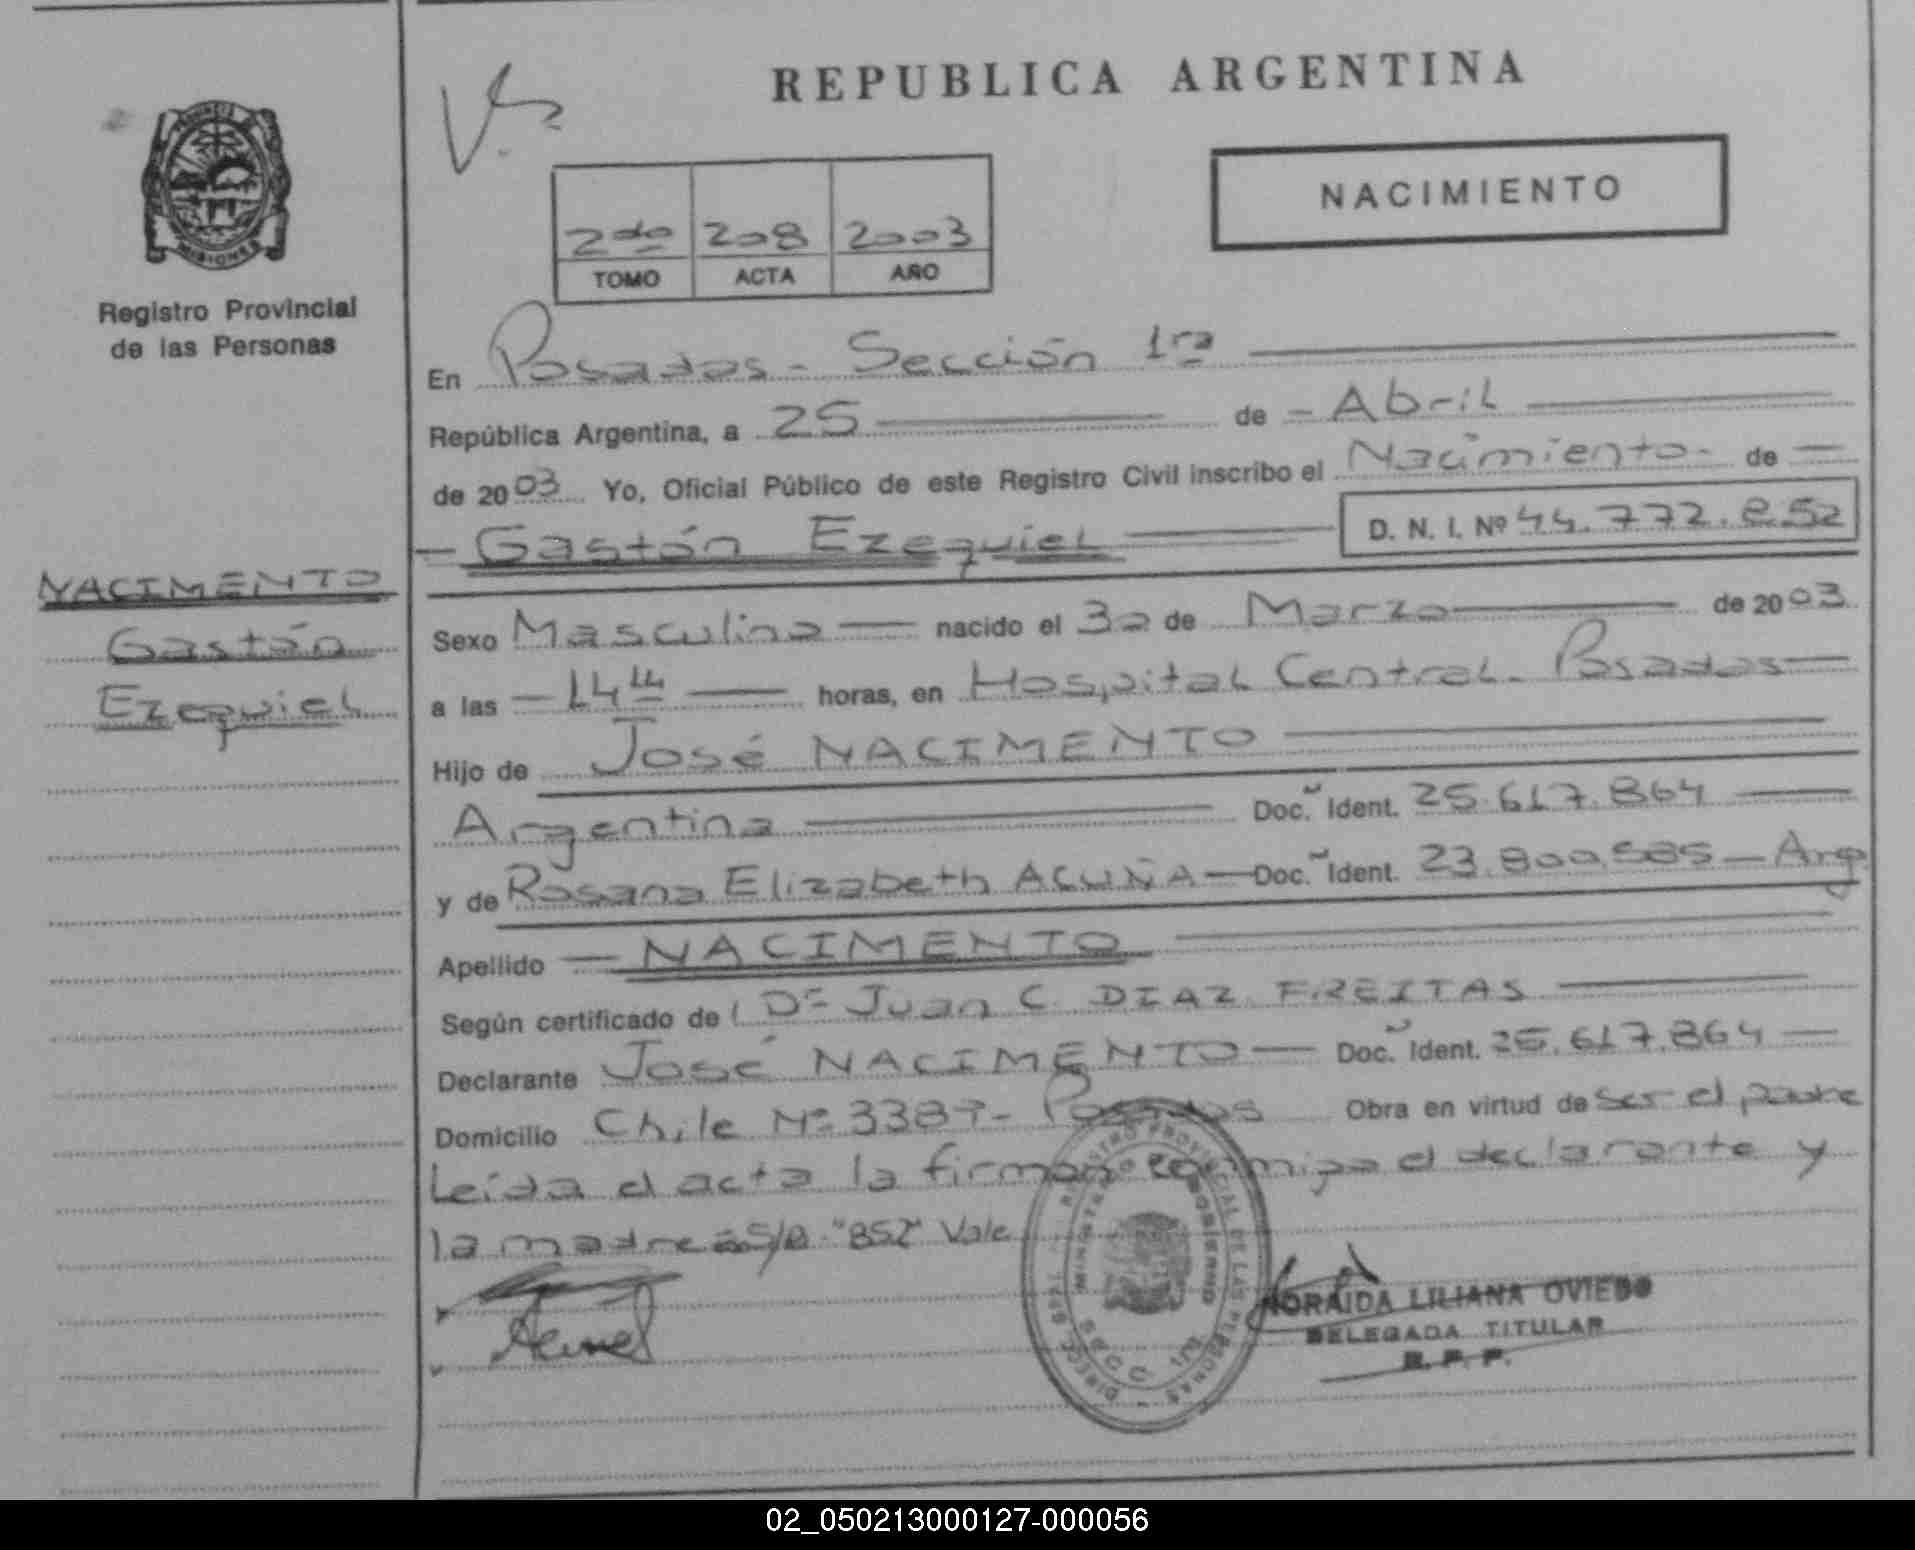 REPUBLICA ARGENTINA
NACIMIENTO
PROVINCIA DE MISIONES
Registro Provincial
de las Personas
2do 208 2003
TOMO ACTA AÑO
En Posadas - Sección 1ra
República Argentina, a 25 de - Abril
de 2003 Yo, Oficial Público de este Registro Civil inscribo el Nacimiento - de -
- Gastón Ezequiel D. N. I. Nº 44.772.852
NACIMENTO
Gastón
Ezequiel
Sexo Masculino - nacido el 30 de Marzo de 2003
a las - 14 horas, en Hospital Central - Posadas -
Hijo de José NACIMENTO
Argentina Doc. Ident. 25.617.864
y de Rosana Elizabeth ACUÑA - Doc. Ident. 23.800.585 - Arg
Apellido - NACIMENTO
Según certificado de Dr Juan C. DIAZ FREITAS
Declarante José NACIMENTO - Doc. Ident. 25.617.864 -
Domicilio Chile Nº 3387 - Posadas Obra en virtud de ser el padre
Leída el acta la firman conmigo el declarante y
la madre S/R "852" Vale
DIRECC. GRAL. REGISTRO PROVINCIAL DE LAS PERSONAS
MINISTERIO GOBIERNO
SECC. 1ra
NORAIDA LILIANA OVIEDO
DELEGADA TITULAR
R. P. P.
02_050213000127-000056